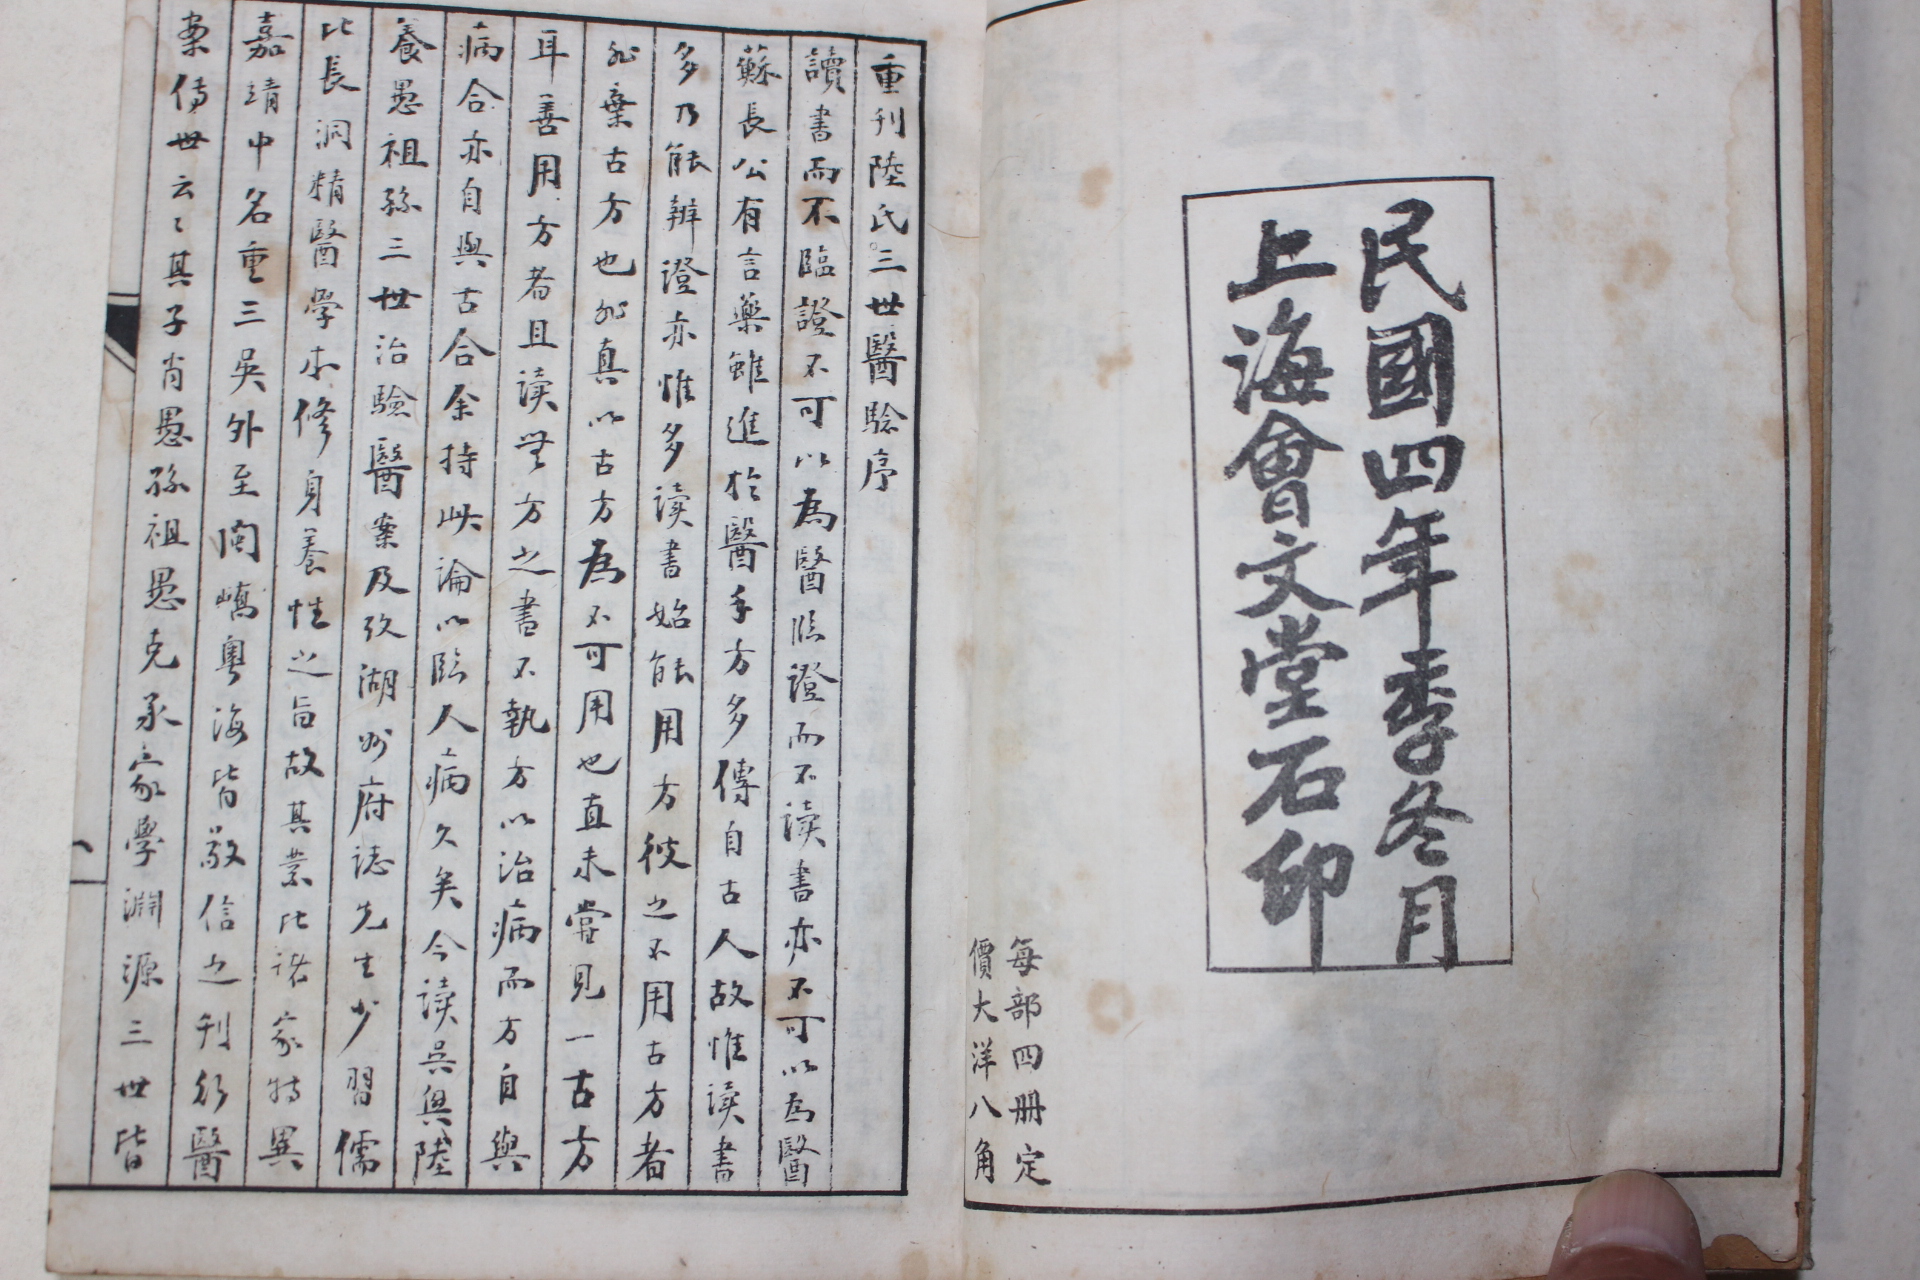 民國四年季冬月
上海會文堂石印
每部四册定
價大洋八角
重刊陸氏三世醫驗序
讀書而不臨證不可以為醫臨證而不读書亦不可以為醫
蘇長公有言藥雖進於醫手方多傳自古人故惟读書
多乃能辨證亦惟多读書始能用方彼之不用古方者
非棄古方也非真以古方為不可用也直未嘗見一古方
耳善用方者且读無方之書不執方以治病而方自與
病合亦自與古合余持此論以臨人病久矣今读吳興陸
養愚祖孫三世治驗醫案及攷湖州府誌先生少習儒
比長洞精醫學本修身養性之旨故其業比諸家特異
嘉靖中名重三吳外至閩嶠粵海皆敬信之刊行醫
案傳世云云其子肖愚孫祖愚克承家學淵源三世皆